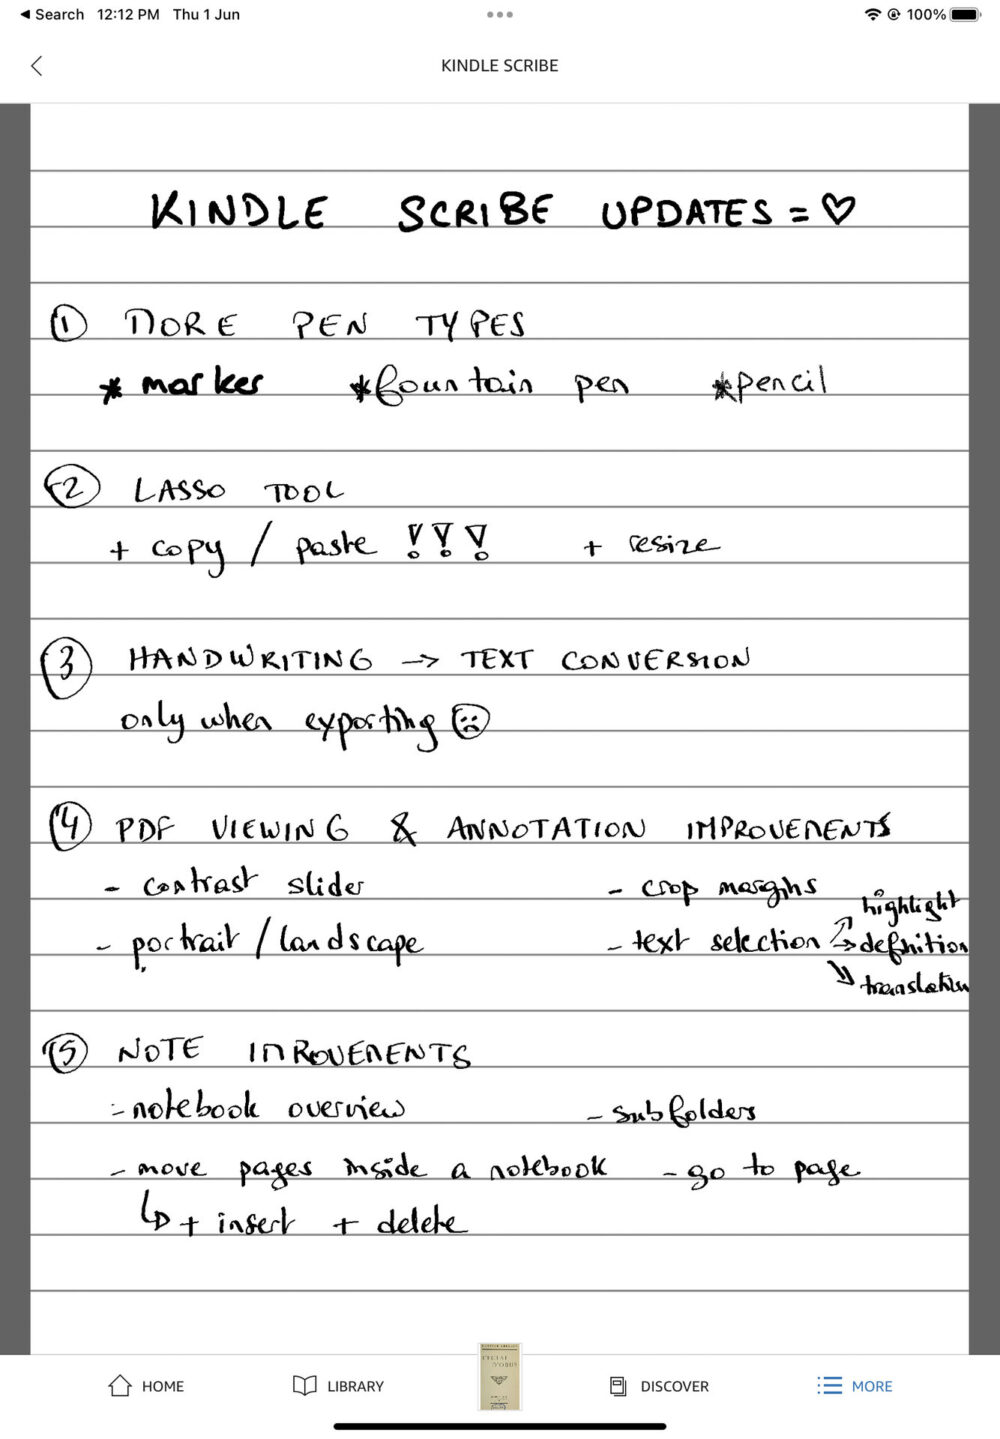 Search 12:12 PM Thu 1 Jun 100%
KINDLE SCRIBE
KINDLE SCRIBE UPDATES = ♡
① MORE PEN TYPES
* marker * fountain pen * pencil
② LASSO TOOL
+ copy / paste !!! + resize
③ HANDWRITING → TEXT CONVERSION
only when exporting ☹
④ PDF VIEWING & ANNOTATION IMPROVEMENTS
- contrast slider - crop margins
- portrait / landscape - text selection → highlight
→ definition
→ translation
⑤ NOTE IMROVEMENTS
- notebook overview - subfolders
- move pages inside a notebook - go to page
↳ + insert + delete
HOME LIBRARY DISCOVER MORE